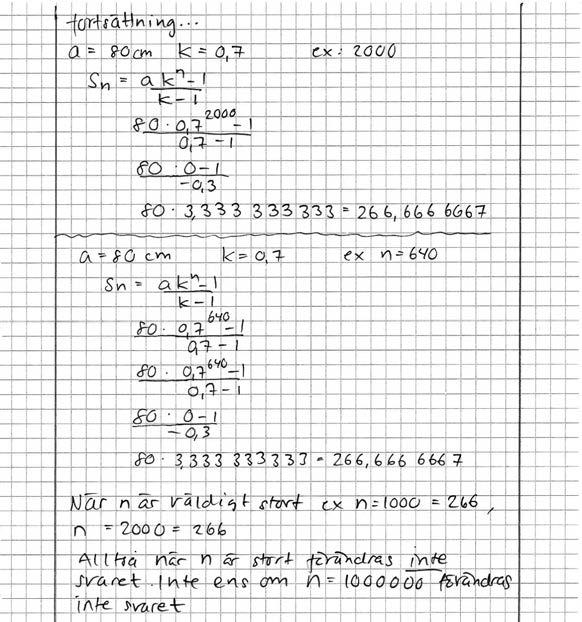 fortsättning...
a = 80 cm k = 0,7 ex: 2000
Sn = a k^n - 1 / k - 1
80 · 0,7^2000 - 1 / 0,7 - 1
80 · 0 - 1 / -0,3
80 · 3,333 333 333 = 266,666 6667
a = 80 cm k = 0,7 ex n = 640
Sn = a k^n - 1 / k - 1
80 · 0,7^640 - 1 / 0,7 - 1
80 · 0,7^640 - 1 / 0,7 - 1
80 · 0 - 1 / -0,3
80 · 3,333 333 333 = 266,666 6667
När n är väldigt stort ex n = 1000 = 266,
n = 2000 = 266
Alltså när n är stort förändras inte
svaret. Inte ens om n = 1000000 förändras
inte svaret